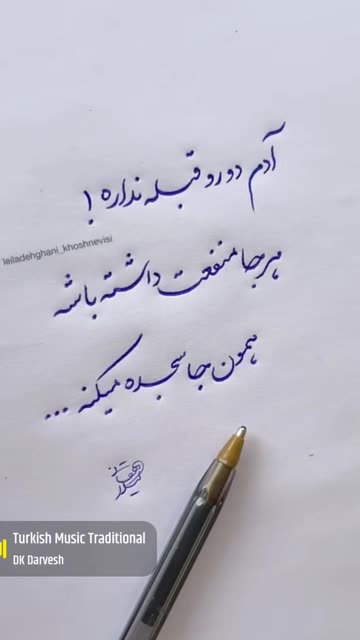 آدم دورو قبله نداره!
leiladehghani_khoshnevisi
هرجا منفعت داشته باشه
همون جا سجده میکنه ...
Turkish Music Traditional
DK Darvesh